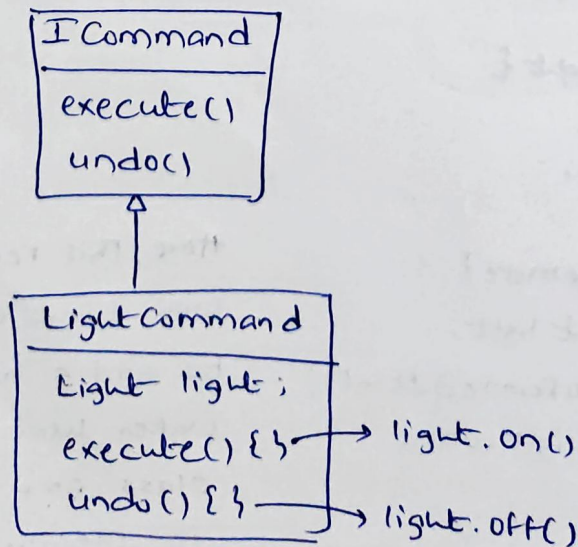 ICommand
execute()
undo()
LightCommand
Light light;
execute() { } → light.on()
undo() { } → light.off()